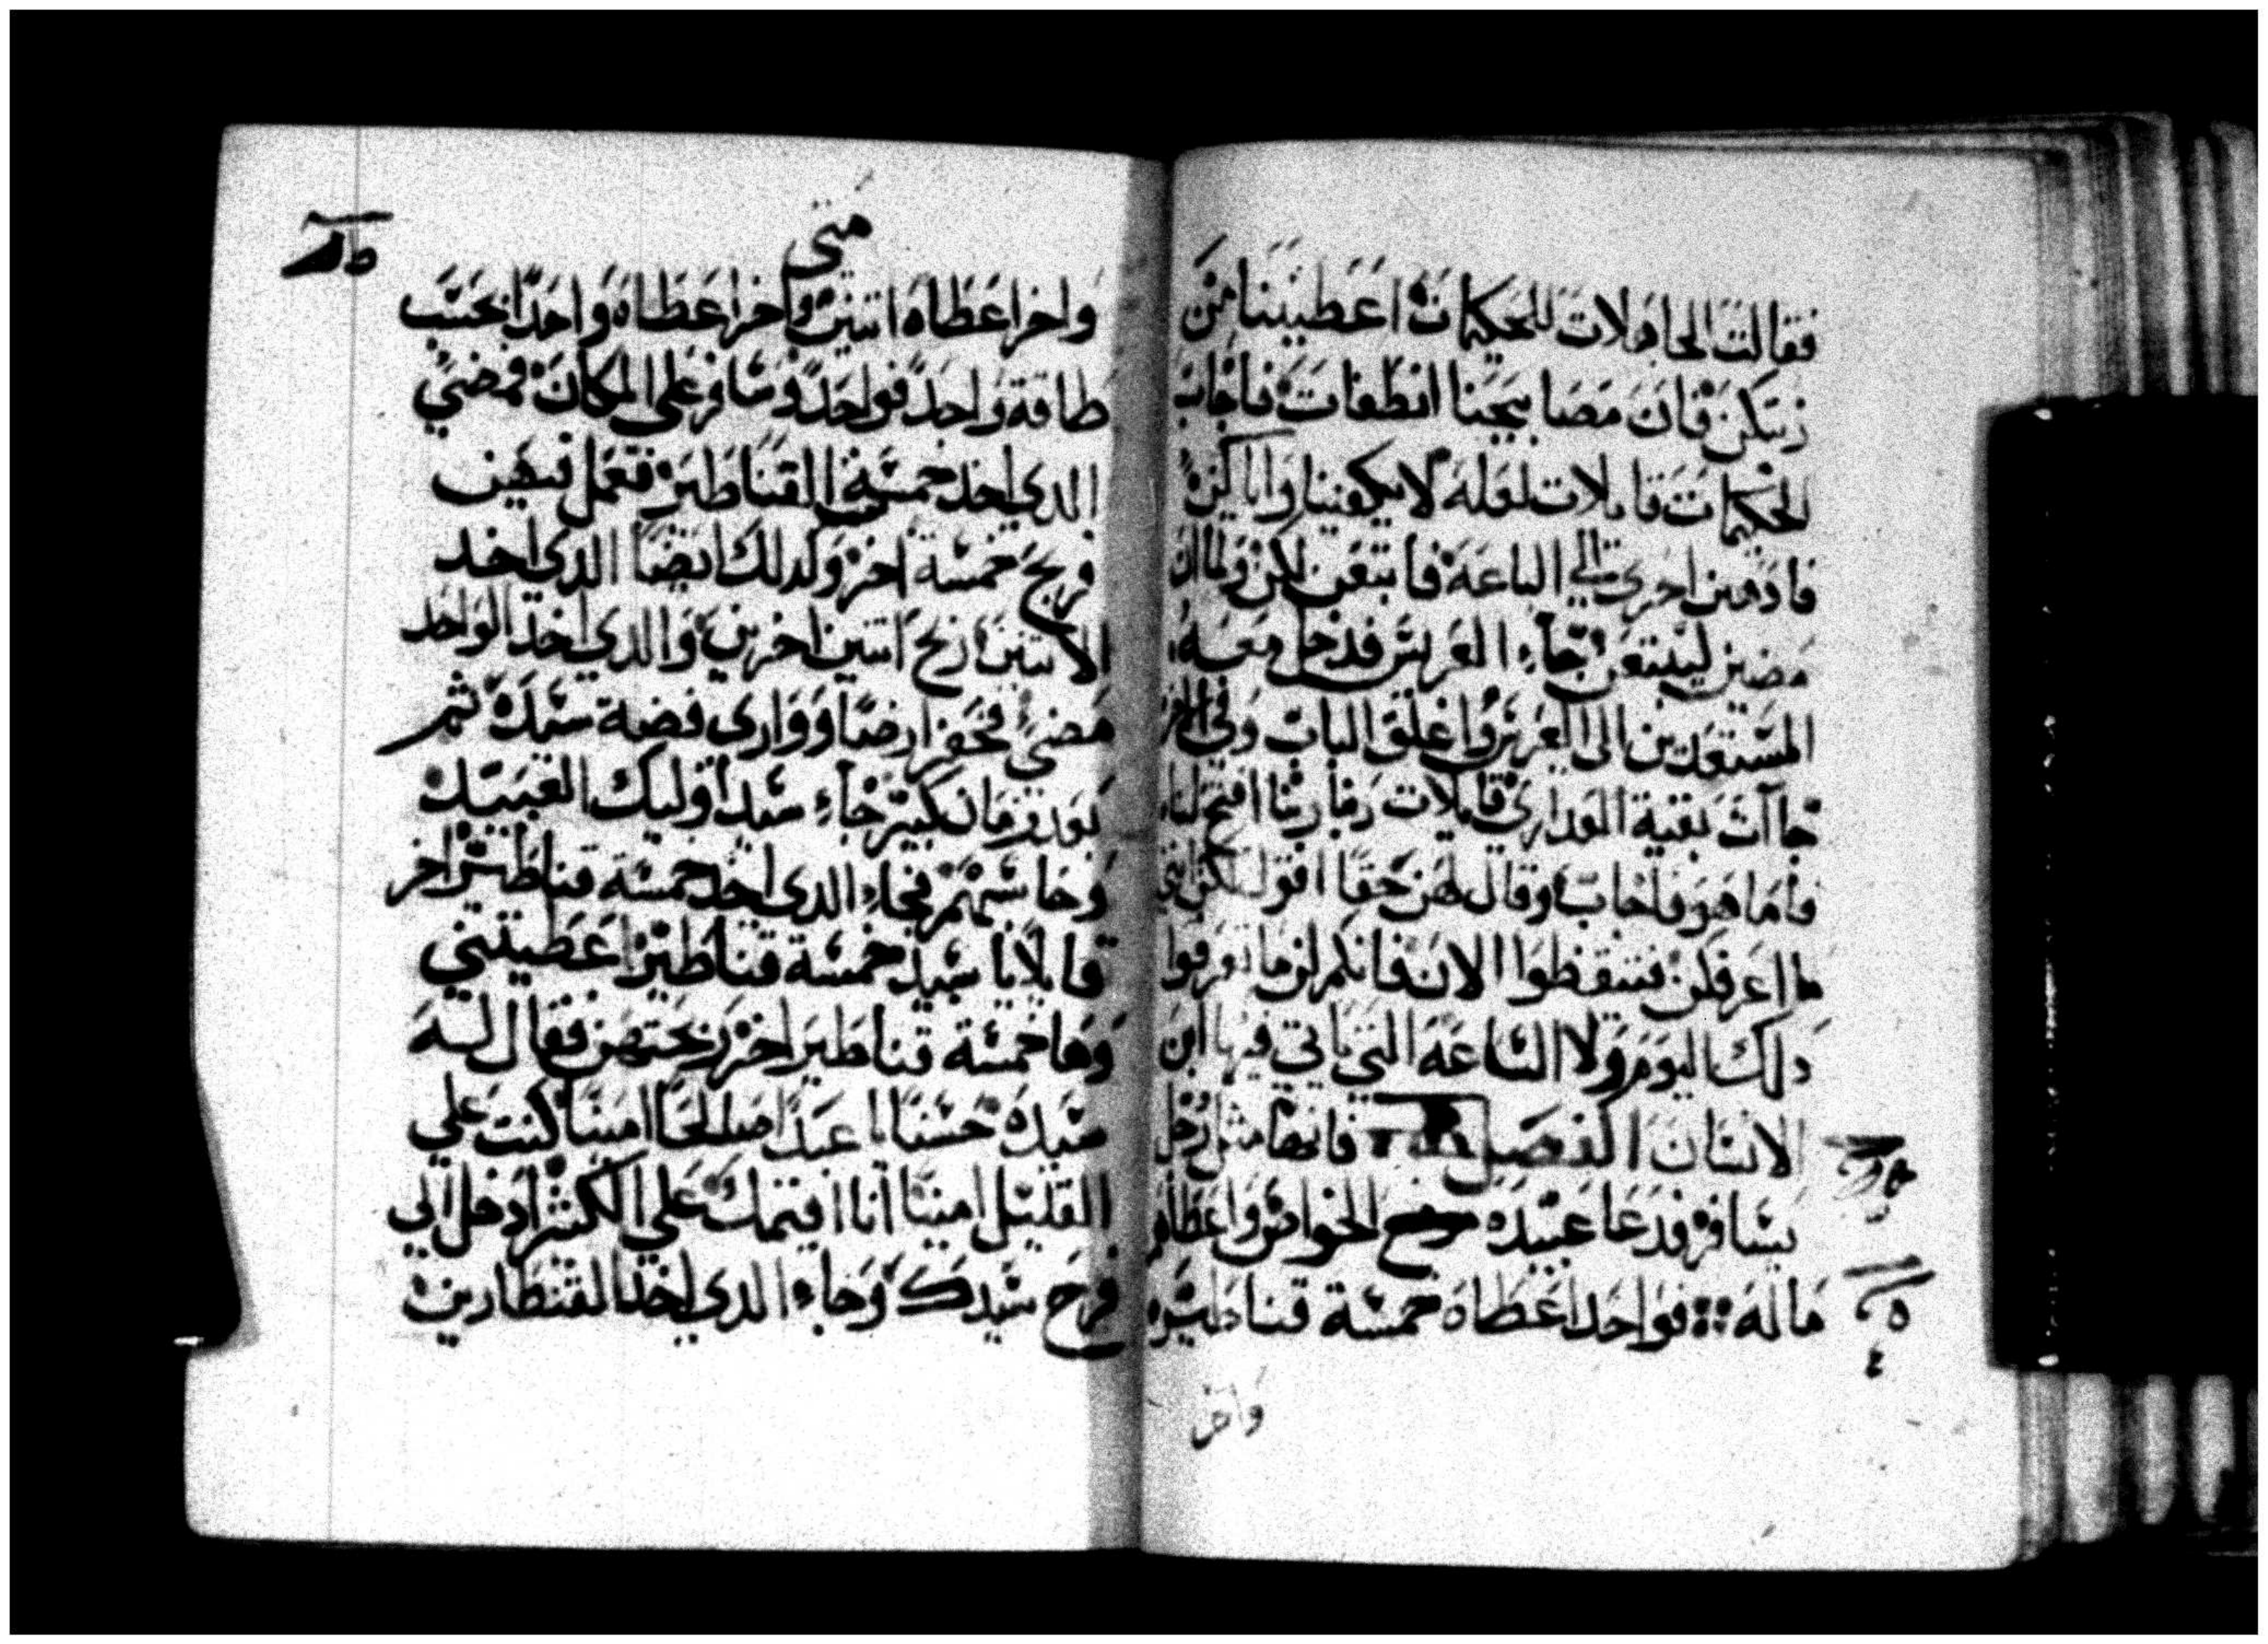 فقالت الحاهلات للحكيمات اعطيننا من
زيتكن فان مصابيحنا انطفات فاجاب
الحكيمات قايلات لعله لا يكفينا واياكن
فاذهبن احرى الي الباعة فابتعن لكن ولما ان
مضين ليبتعن جاء العريس فدخل معه
المستعدين الى العريس واغلق الباب وفي الاخر
جاآت بقية العداري قايلات ربنا ربنا افتح لنا
فاما هو فاجاب وقال لهن حقا اقول لكن اني
ما اعرفكن تيقظوا الان فانكم لن ما تعرفوا
دلك اليوم ولا الساعة التي ياتي فيها ابن
الانسان الفصل فانها مثل رجل
يسافر فدعا عبيده الخواص واعطاهم
ماله فواحد اعطاه خمسة قناطير
واخر
متى
واخر اعطاه اتنين واخر اعطاه واحدا بحسب
طاقة واحد فواحد وسافر على المكان فمضي
الدي اخد خمسة القناطير فعمل فيهن
فربح خمسة اخر وكدلك ايضا الدي اخد
الاتنين ربح اتنين اخرين والدي اخد الواحد
مضي فحفر ارضا ووارى فضة سيده ثم
بعد زمان كبير جاء سيد اوليك العبيد
وحاسبهم فجاء الدى اخد خمسة قناطير اخر
قايلا يا سيد خمسة قناطير اعطيتني
وها خمسة قناطير اخر ربحتهن فقال له
سيده حسنا يا عبدا صالحا امينا كنت علي
القليل امينا انا اقيمك علي الكثير ادخل الي
فرح سيدك وجاء الدي اخد القنطارين